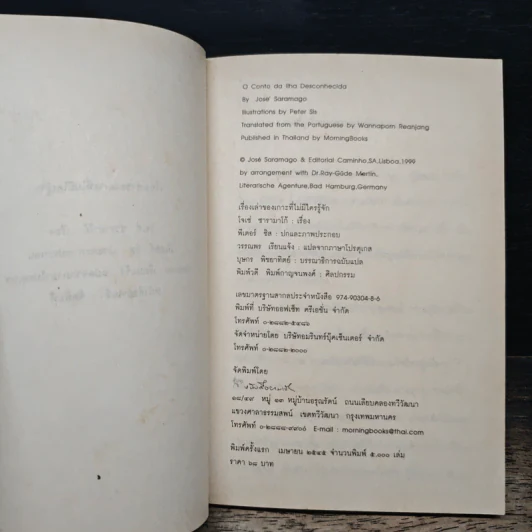 O Conto da Ilha Desconhecida
By José Saramago
Illustrations by Peter Sis
Translated from the Portuguese by Wannaporn Reanjang
Published in Thailand by MorningBooks
© José Saramago & Editorial Caminho,SA,Lisboa,1999
by arrangement with Dr.Ray-Güde Mertin,
Literarische Agenture,Bad Hamburg,Germany
เรื่องเล่าของเกาะที่ไม่มีใครรู้จัก
โจเซ่ ซารามาโก้ : เรื่อง
พีเตอร์ ซิส : ปกและภาพประกอบ
วรรณพร เรียนแจ้ง : แปลจากภาษาโปรตุเกส
บุษกร พิชยาทิตย์ : บรรณาธิการฉบับแปล
พิมพ์วดี พิมพ์กาญจนพงศ์ : ศิลปกรรม
เลขมาตรฐานสากลประจำหนังสือ 974-90304-8-6
พิมพ์ที่ บริษัทออฟเซ็ท ครีเอชั่น จำกัด
โทรศัพท์ ๐-๒๘๘๒-๕๔๘๖
จัดจำหน่ายโดย บริษัทอมรินทร์บุ๊คเซ็นเตอร์ จำกัด
โทรศัพท์ ๐-๒๘๘๒-๒๐๐๐
จัดพิมพ์โดย
๑๘/๔๙ หมู่ ๑๓ หมู่บ้านอรุณรัศน์ ถนนเลียบคลองทวีวัฒนา
แขวงศาลาธรรมสพน์ เขตทวีวัฒนา กรุงเทพมหานคร
โทรศัพท์ ๐-๒๘๘๘-๙๙๖๐ E-mail : morningbooks@thai.com
พิมพ์ครั้งแรก เมษายน ๒๕๔๕ จำนวนพิมพ์ ๕,๐๐๐ เล่ม
ราคา ๖๘ บาท